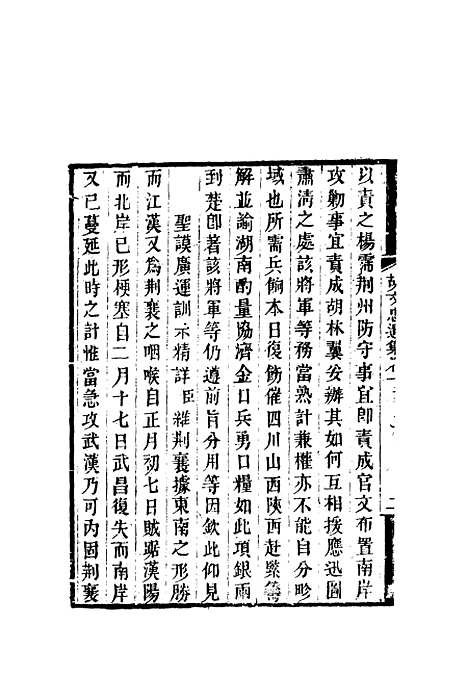 以責之楊霈荆州防守事宜卽責成官文布置南岸
攻勦事宜責成胡林翼妥辦其如何互相援應迅圖
肅清之處該將軍等務當熟計兼權亦不能自分畛
域也所需兵餉本日復飭催四川山西陝西赶緊籌
解並諭湖南酌量協濟金口兵勇口糧如此項銀兩
到楚卽著該將軍等仍遵前旨分用等因欽此仰見
聖謨廣運訓示精詳臣維荆襄據東南之形勝
而江漢又為荆襄之咽喉自正月初七日賊踞漢陽
而北岸已形梗塞自二月十七日武昌復失而南岸
又已蔓延此時之計惟當急攻武漢乃可內固荆襄